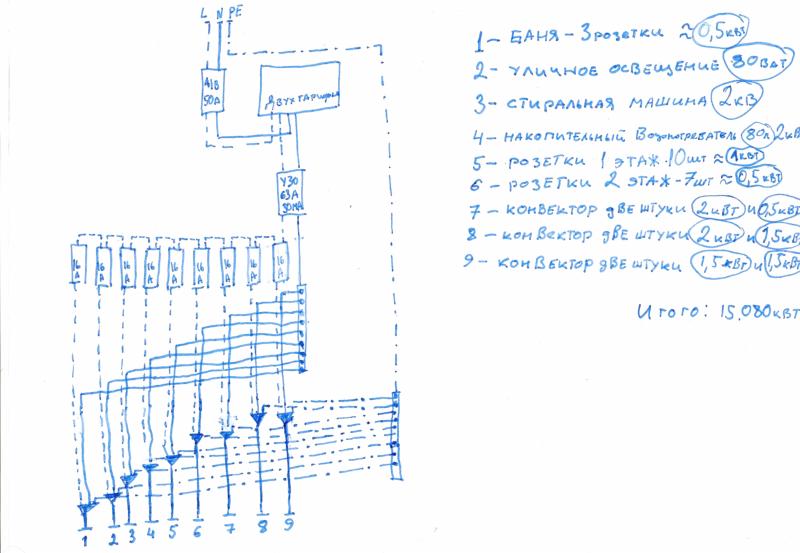 L N PE
АВВ
50А
ДВУХТАРИФНЫЙ
УЗО
63А
30МА
16А 16А 16А 16А 16А 16А 16А 16А 16А
1 2 3 4 5 6 7 8 9
1 - БАНЯ - 3 РОЗЕТКИ ≈ 0,5 КВТ
2 - УЛИЧНОЕ ОСВЕЩЕНИЕ 80 ВАТ
3 - СТИРАЛЬНАЯ МАШИНА 2 КВ
4 - НАКОПИТЕЛЬНЫЙ Водонагреватель 80л 2КВ
5 - РОЗЕТКИ 1 ЭТАЖ·10шт ≈ 1КВТ
6 - РОЗЕТКИ 2 ЭТАЖ - 7шт ≈ 0,5 КВТ
7 - КОНВЕКТОР ДВЕ ШТУКИ 2 КВТ И 0,5 КВТ
8 - КОНВЕКТОР ДВЕ ШТУКИ 2 КВТ И 1,5 КВ
9 - КОНВЕКТОР ДВЕ ШТУКИ 1,5 КВТ И 1,5 КВ
ИТОГО: 15,080 КВТ